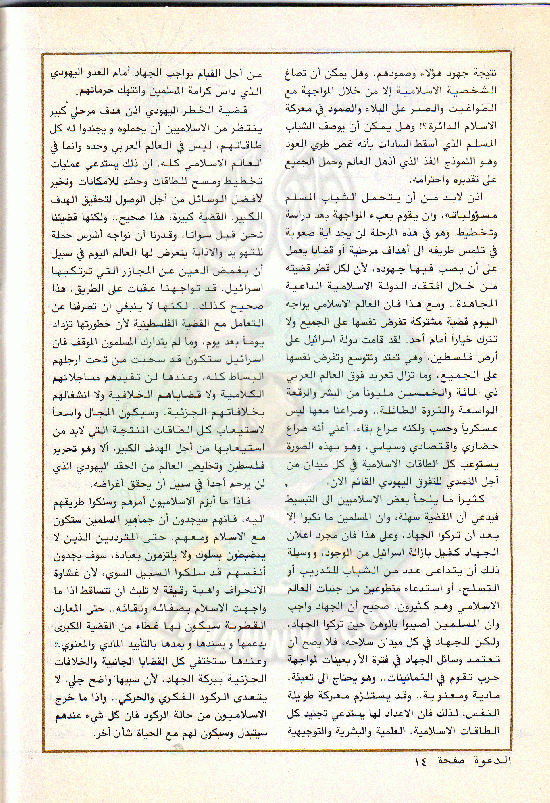 نتيجة جهود هؤلاء وصمودهم، وهل يمكن أن تصاغ
الشخصية الاسلامية إلا من خلال المواجهة مع
الطواغيت والصبر على البلاء والصمود في معركة
الاسلام الدائرة؟! وهل يمكن أن يوصف الشباب
المسلم الذي أسقط السادات بأنه غض طري العود
وهو النموذج الفذ الذي أذهل العالم وحمل الجميع
على تقديره واحترامه.
اذن لابد من أن يتحمل الشباب المسلم
مسؤولياته، وان يقوم بعبء المواجهة بعد دراسة
وتخطيط. وهو في هذه المرحلة لن يجد اية صعوبة
في تلمس طريقه الى أهداف مرحلية أو قضايا يعمل
على أن يصب فيها جهوده، لأن لكل قطر قضيته
من خلال افتقاد الدولة الاسلامية الداعية
المجاهدة.. ومع هذا فان العالم الاسلامي يواجه
اليوم قضية مشتركة تفرض نفسها على الجميع ولا
تترك خيارا أمام أحد. لقد قامت دولة اسرائيل على
أرض فلسطين، وهي تمتد وتتوسع وتفرض نفسها
على الجميع، وما تزال تعربد فوق العالم العربي
ذي المائة والخمسين مليوناً من البشر والرقعة
الواسعة والثروة الطائلة.. وصراعنا معها ليس
عسكرياً وحسب ولكنه صراع بقاء، أعني أنه صراع
حضاري واقتصادي وسياسي، وهو بهذه الصورة
يستوعب كل الطاقات الاسلامية في كل ميدان من
أجل التصدي للتفوق اليهودي القائم الان.
كثيراً ما يلجأ بعض الاسلاميين الى التبسيط
فيدعي أن القضية سهلة، وان المسلمين ما نكبوا إلا
بعد أن تركوا الجهاد، وعلى هذا فان مجرد اعلان
الجهاد كفيل بازالة اسرائيل من الوجود، ووسيلة
ذلك أن يتداعى عدد من الشباب للتدريب أو
التسلح، أو استدعاء متطوعين من جنبات العالم
الاسلامي وهم كثيرون. صحيح أن الجهاد واجب
وان المسلمين أصيبوا بالوهن حين تركوا الجهاد،
ولكن للجهاد في كل ميدان سلاحه، فلا يصح أن
تعتمد وسائل الجهاد في فترة الأربعينات لمواجهة
حرب تقوم في الثمانينات، وهو يحتاج الى تعبئة،
مادية ومعنوية.. وقد يستلزم معركة طويلة
النفس، لذلك فان الاعداد لها يستدعي تجنيد كل
الطاقات الاسلامية، العلمية والبشرية والتوجيهية
من أجل القيام بواجب الجهاد أمام العدو اليهودي
الذي داس كرامة المسلمين وانتهك حرماتهم.
قضية الخطر اليهودي اذن هدف مرحلي كبير
ينتظر من الاسلاميين أن يحملوه ويجندوا له كل
طاقاتهم، ليس في العالم العربي وحده وانما في
العالم الاسلامي كله، ان ذلك يستدعي عمليات
تخطيط ومسح للطاقات وحشد للامكانات وتخير
لأفضل الوسائل من أجل الوصول لتحقيق الهدف
الكبير. القضية كبيرة، هذا صحيح.. ولكنها قضيتنا
نحن قبل سوانا، وقدرنا أن نواجه أشرس حملة
للتهويد والاذابة يتعرض لها العالم اليوم في سبيل
أن يغمض العين عن المجازر التي ترتكبها
اسرائيل. قد تواجهنا عقبات على الطريق، هذا
صحيح كذلك.. لكنها لا ينبغي ان تصرفنا عن
التعامل مع القضية الفلسطينية لأن خطورتها تزداد
يوماً بعد يوم، وما لم يتدارك المسلمون الموقف فان
اسرائيل ستكون قد سحبت من تحت ارجلهم
البساط كله، وعندها لن تفيدهم مساجلاتهم
الكلامية ولا قضاياهم الخلافية ولا انشغالهم
بخلافاتهم الجزئية. وسيكون المجال واسعاً
لاستيعاب كل الطاقات المنتجة التي لابد من
استيعابها من أجل الهدف الكبير، ألا وهو تحرير
فلسطين وتخليص العالم من الحقد اليهودي الذي
لن يرحم أحداً في سبيل أن يحقق أغراضه.
فاذا ما أبرم الاسلاميون أمرهم وسلكوا طريقهم
اليه، فانهم سيجدون أن جماهير المسلمين ستكون
مع الاسلام ومعهم. حتى المترددين الذين لا
ينضبطون بسلوك ولا يلتزمون بعبادة، سوف يجدون
أنفسهم قد سلكوا السبيل السوي، لأن غشاوة
الانحراف واهية رقيقة لا تلبث ان تتساقط اذا ما
واجهت الاسلام بصفائه ونقائه. حتى المعارك
القطرية سيكون لها غطاء من القضية الكبرى
يدعمها ويسندها ويمدها بالتأييد المادي والمعنوي.
وعندها ستختفي كل القضايا الجانبية والخلافات
الجزئية ببركة الجهاد، لأن سببها واضح جلي، لا
يتعدى الركود الفكري والحركي.. واذا ما خرج
الاسلاميون من حالة الركود فان كل شيء عندهم
سيتبدل وسيكون لهم مع الحياة شأن آخر.
الدعوة صفحة ١٤